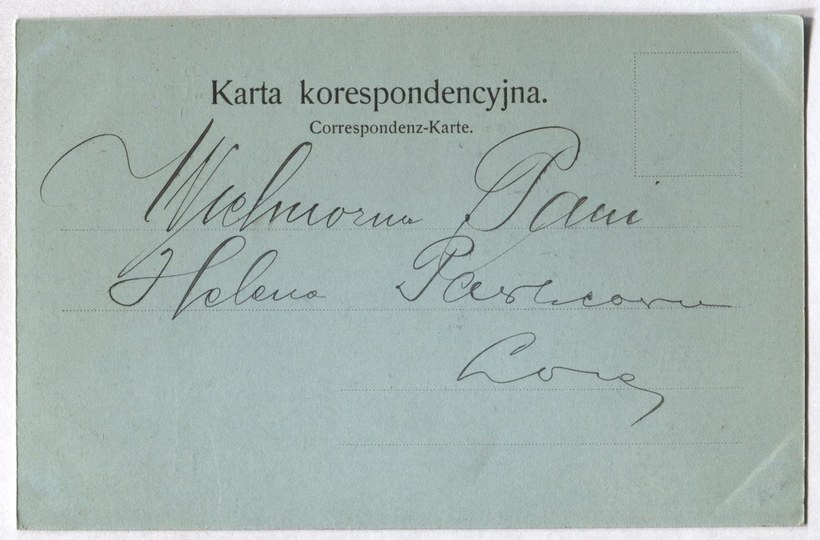 Karta korespondencyjna.
Correspondenz-Karte.
Wielmożna Pani
Helena